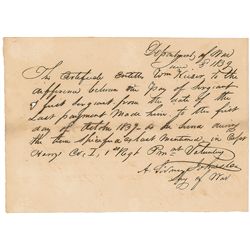 Department of War
8 1839
This Certificate Entitles Wm to the
difference between the Pay of Sergeant
& first Sergeant from the date of the
Last payment made him to the first
day of October 1837 to be during
the time Specified as last Mentioned, in Capt
Henry Co. I, 1st Regt Volunteers
A. Sidney Johnston
Secy of War